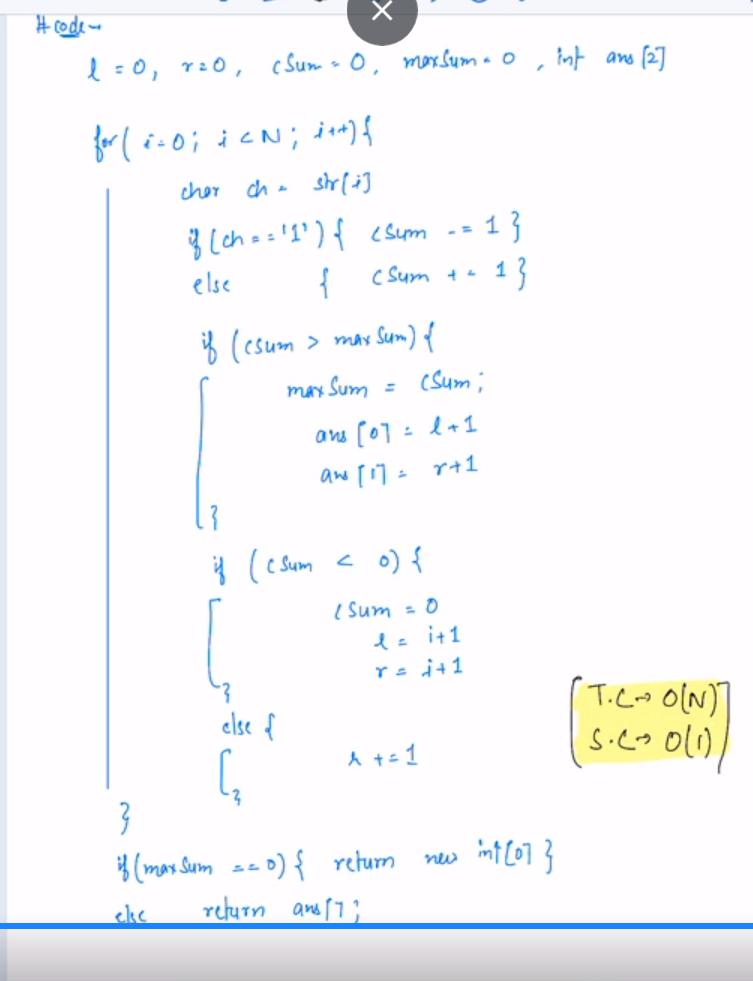 # code→
l = 0, r = 0, cSum = 0, maxSum = 0, int ans [2]
for( i=0; i < N; i++) {
char ch = str[i]
if (ch == '1') { cSum -= 1 }
else { cSum += 1 }
if (csum > maxSum) {
maxSum = cSum;
ans [0] = l+1
ans [1] = r+1
}
if (cSum < 0) {
cSum = 0
l = i+1
r = i+1
}
else {
r += 1
}
}
if (maxSum == 0) { return new int[0] }
else return ans[];
T.C→ O(N)
S.C→ O(1)